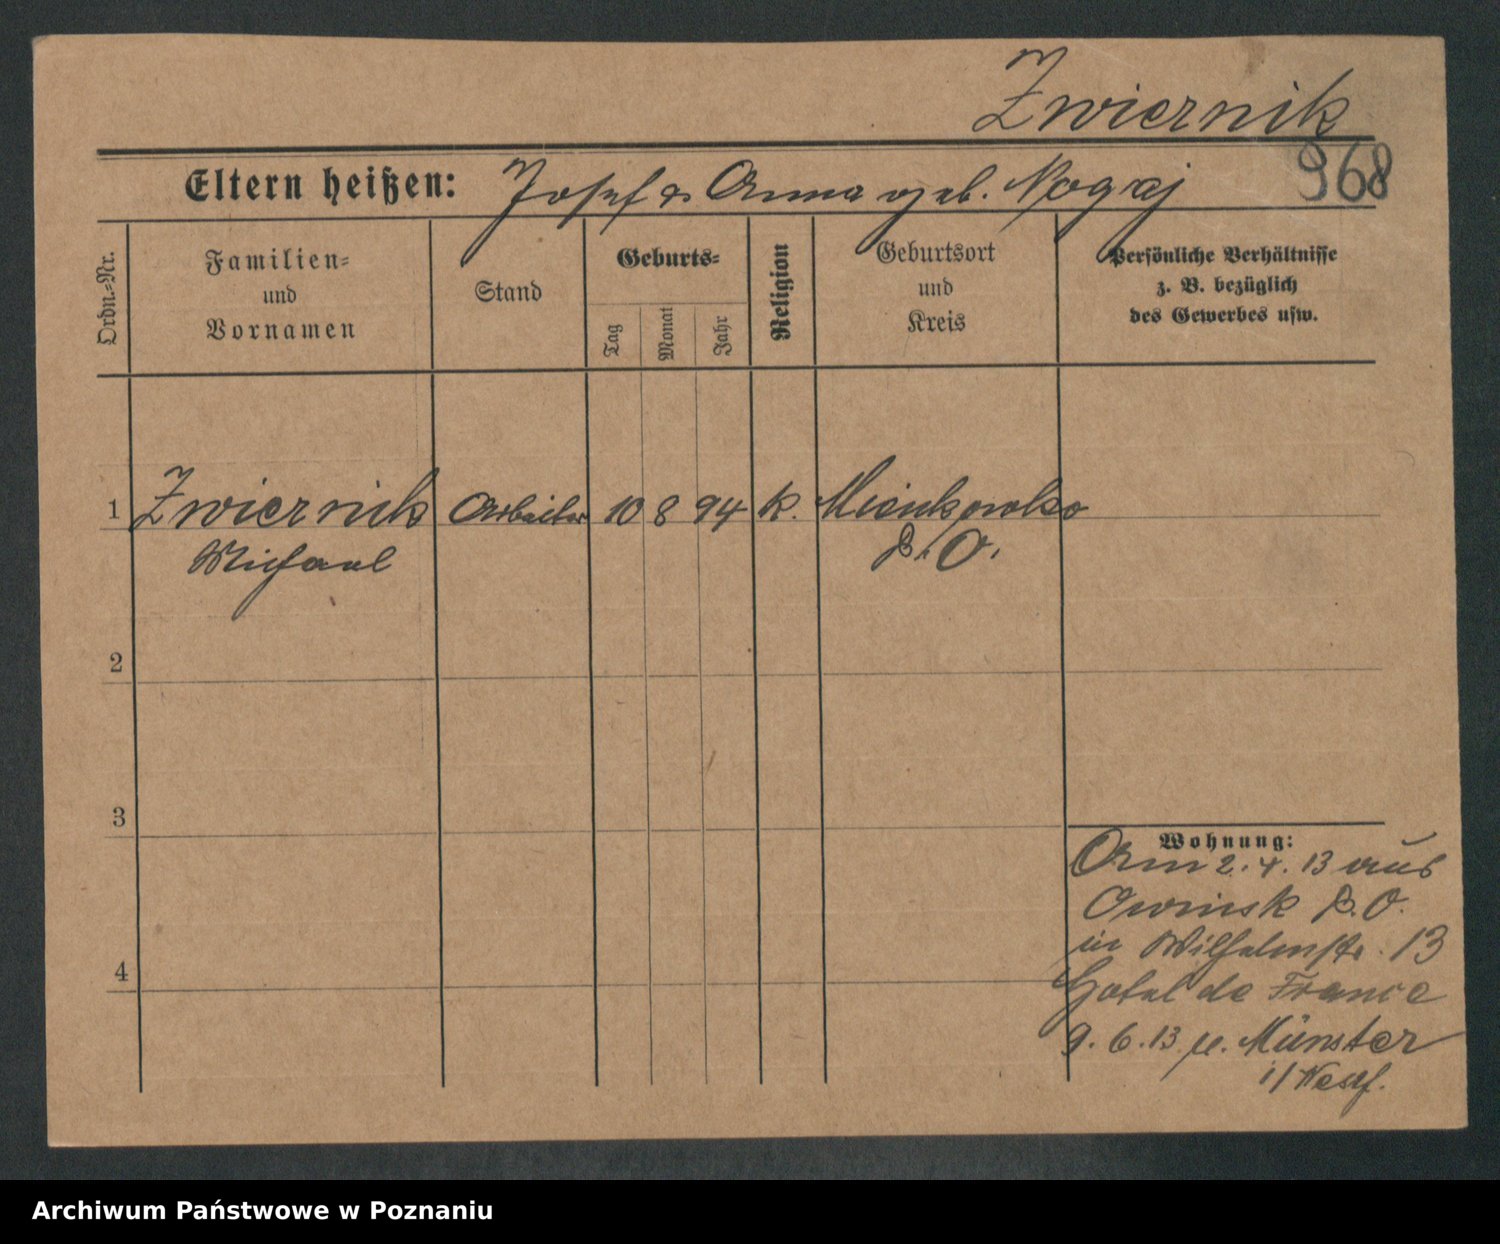 Zwiernik
968
Eltern heißen: Josef & Anna geb. Nogaj
Ordn.-Nr.
Familien-
und
Vornamen
Stand
Geburts-
Tag
Monat
Jahr
Religion
Geburtsort
und
Kreis
Persönliche Verhältnisse
z. B. bezüglich
des Gewerbes usw.
1 Zwiernik Arbeiter 10 8 94 k. Mienkowko
Michael P. O.
2
3
4
Wohnung:
Am 2. 4. 13 aus
Owinsk P. O.
in Wilhelmstr. 13
Hotel de France
9. 6. 13 n. Münster
i/Westf.
Archiwum Państwowe w Poznaniu